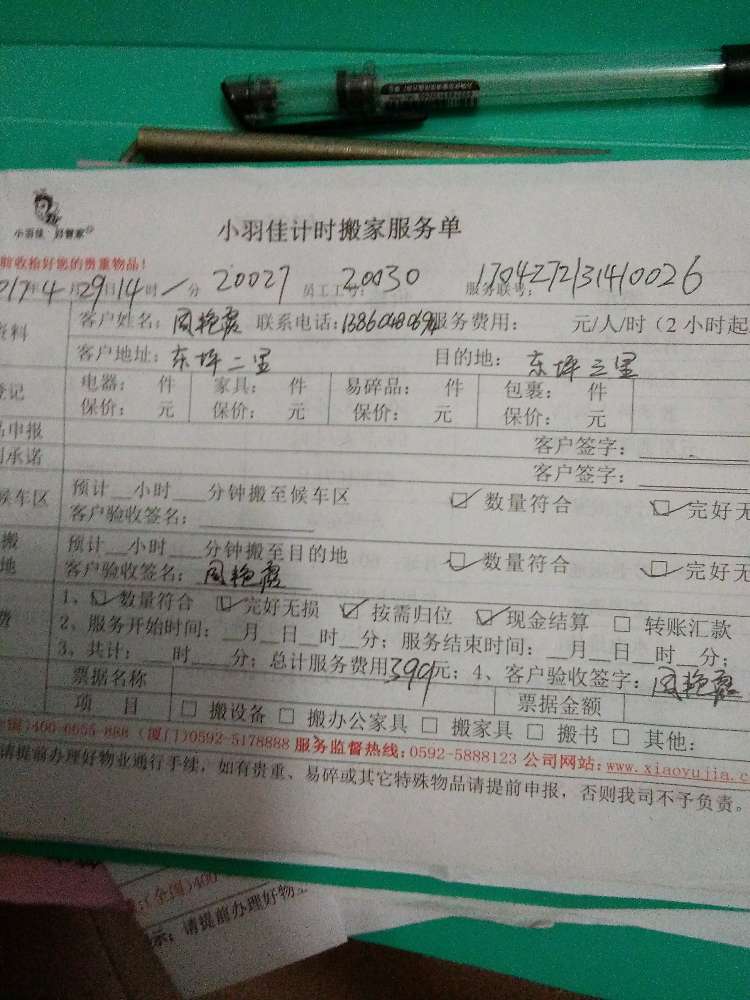 小羽佳 好管家
小羽佳计时搬家服务单
前收拾好您的贵重物品!
017年4月29日14时 分 20027 员工工号: 20030 服务联号: 1704272131410026
资料 客户姓名: 周艳霞 联系电话: 服务费用: 元/人/时(2小时起
客户地址: 东坪二里 目的地: 东坪三里
登记 电器: 件 家具: 件 易碎品: 件 包裹: 件
保价: 元 保价: 元 保价: 元 保价: 元
品申报 客户签字:
承诺 客户签字:
候车区 预计__小时__分钟搬至候车区 ☑ 数量符合 ☑ 完好无
客户验收签名:
搬 预计__小时__分钟搬至目的地 ☑ 数量符合 ☑ 完好无
地 客户验收签名: 周艳霞
1、☑ 数量符合 ☑ 完好无损 ☑ 按需归位 ☑ 现金结算 □ 转账汇款
费 2、服务开始时间: __月__日__时__分; 服务结束时间: __月__日__时__分;
3、共计: __时__分; 总计服务费用399元; 4、客户验收签字: 周艳霞
票据名称 票据金额
项 目 □ 搬设备 □ 搬办公家具 □ 搬家具 □ 搬书 □ 其他:
国)400-6655-888 (厦门)0592-5178888 服务监督热线: 0592-5888123 公司网站: www.xiaoyujia.c
请提前办理好物业通行手续, 如有贵重、易碎或其它特殊物品请提前申报, 否则我司不予负责。
:(全国)400
示: 请提前办理好物业